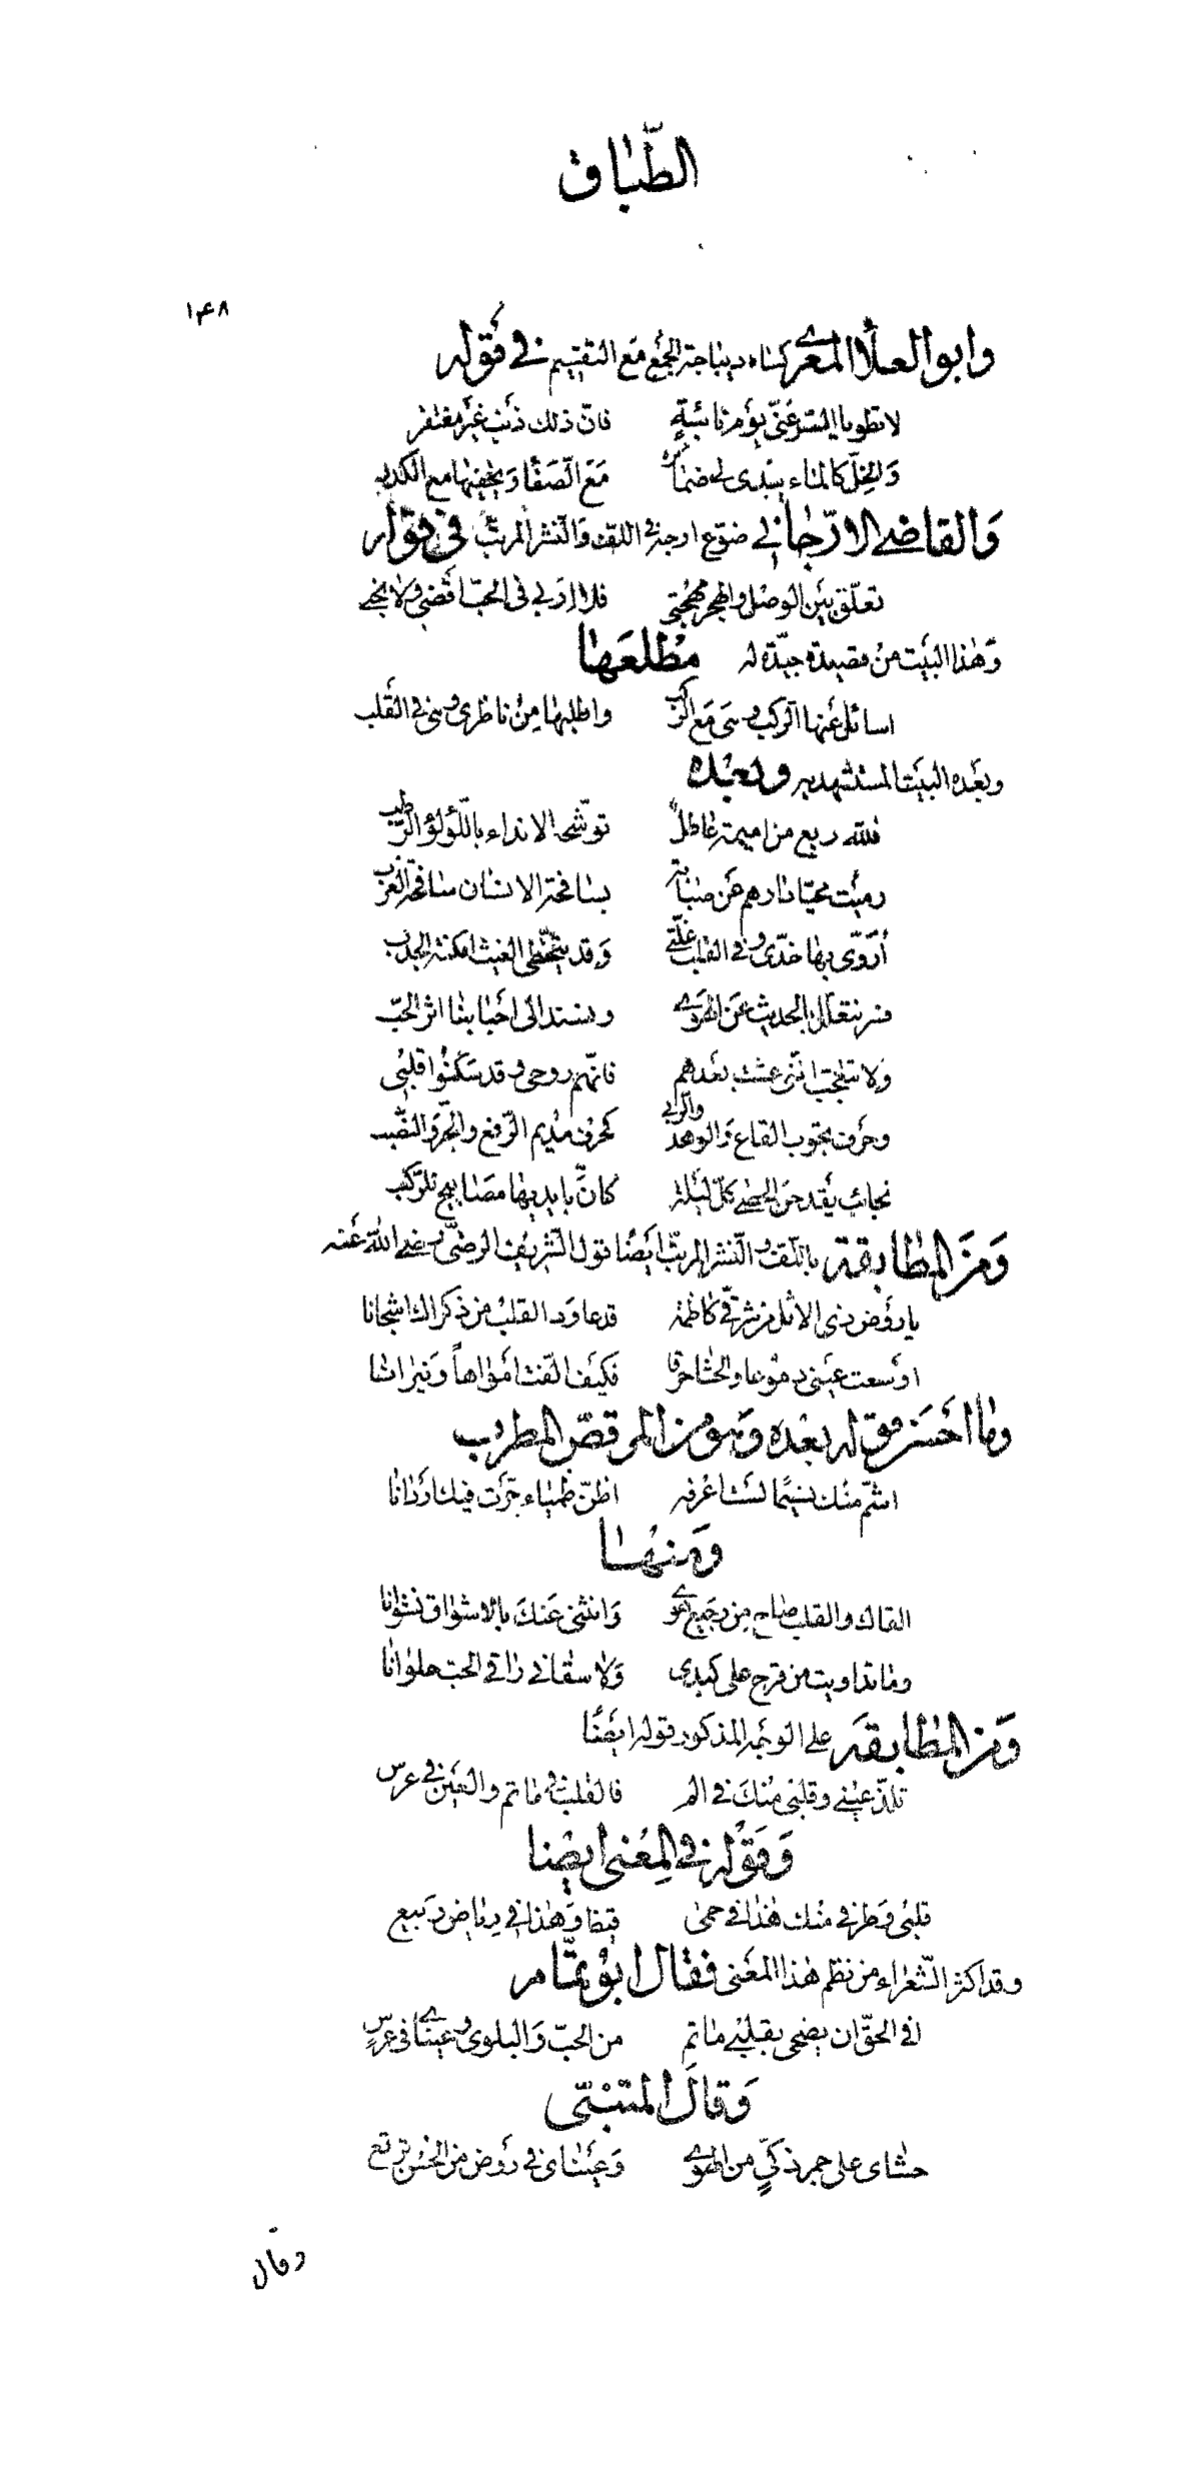 الطباق
۱۴۸
وابو العلا المعري كساه ديباجة الجمع مع التقسيم في قوله
لا تطويا السر عني يوم نائبة فان ذلك ذنب غير مغتفر
والخل كالماء يبدى لي ضمائره مع الصفا ويخفيها مع الكدر
والقاضي الارجاني ضوع ارجه في اللف والنشر المرتب في قوله
تعلق بين الوصل والهجر مهجتي فلا اربي في الحب اقضي ولا نحبي
وهذا البيت من قصيدة جيدة له مطلعها
اسائل عنها الركب وهى مع الركب واطلبها من ناظرى وهى في القلب
وبعده البيت المستشهد به وبعده
فلله ربع من اميمة عاطل توشحه الانداء باللؤلؤ الرطب
رميت محيا دارهم عن صبابة بسافحة الانسان سافحة الغرب
أروى بها خدى وفي القلب غلتي وقد يتخطى الغيث امكنة الجدب
ويسند الى احبابنا اثر الحب
ولا تتعجب اننى عشت بعدهم فانهم روحى وقد سكنوا قلبى
وحرف بجوب القاع والوهد والربي كحرف مديم الرفع والجر والنصب
نجائب يقدحن الحصي كل ليلة كان بايديها مصابيح للركب
ومن المطابقة باللف والنشر المرتب ايضا قول الشريف الرضى رضى الله عنه
يا روض ذى الاثل من شرقي كاظمة قد عاود القلب من ذكراك اشجانا
اوسعت عينى دموعا والحشا حرقا فكيف الفت امواها ونيرانا
وما احسن قوله بعده وهو من المرقص المطرب
اشم منك نسيما لست اعرفه اظن ظمياء جرت فيك اردانا
ومنها
القاك والقلب صاح من رجيع هوى وانثنى عنك بالاشواق نشوانا
وما تداويت من قرح على كبدى ولا سقاني راقي الحب سلوانا
ومن المطابقه على الوجه المذكور قوله ايضا
تلذ عيني وقلبى منك في الم فالقلب في ماتم والعين في عرس
وقوله في المعنى ايضا
قلبى وطرفي منك هذا في حمى قيظ وهذا في رياض ربيع
وقد اكثر الشعراء من نظم هذا المعنى فقال ابو تمام
افي الحق ان يضحى بقلبي ماتم من الحب والبلوى وعيناي في عرس
وقال المتنبى
حشاى على جمر ذكي من الهوى وعيناى في روض من الحسن ترتع
وقال